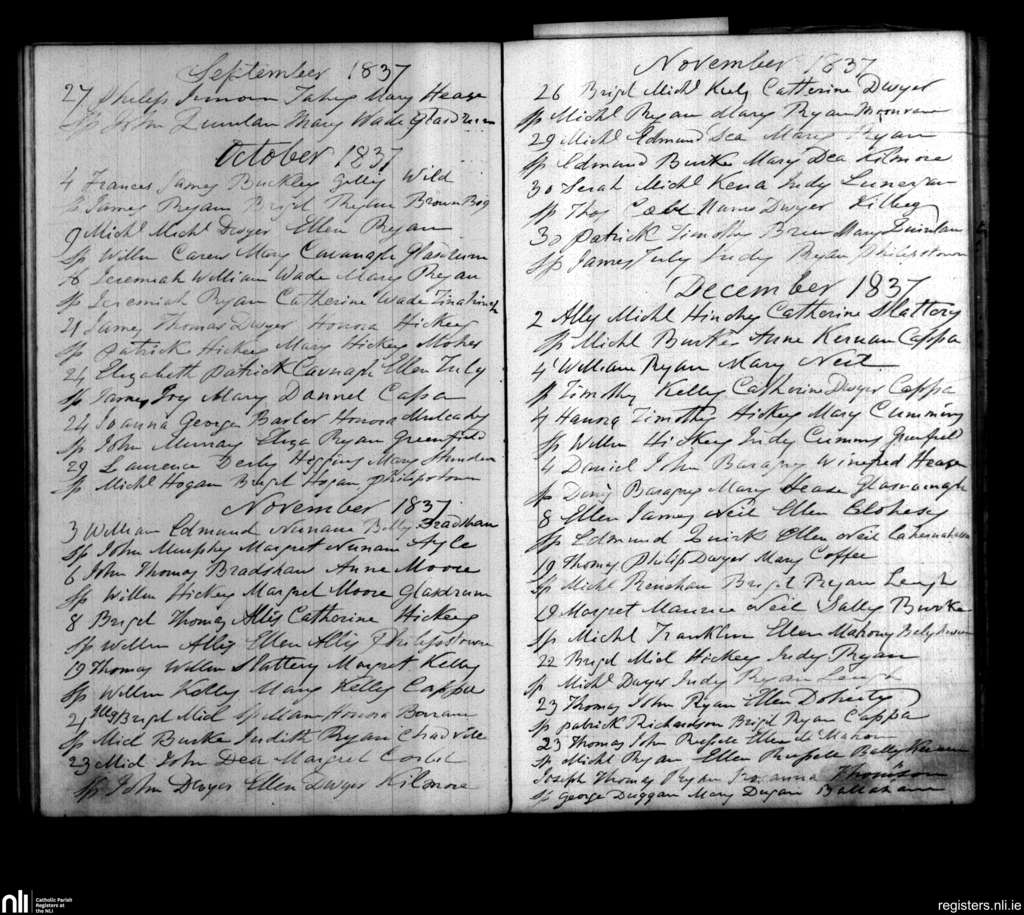 September 1837
27 Philip Simon Fahy Mary Hease
Sp John Quinlan Mary Wade Glasdrum
October 1837
4 Frances James Buckley Wild
Sp James Ryan Brigd Phelan Brown Bog
9 Michl Michl Dwyer Ellen Ryan
Sp Willm Carew Mary Cavanagh Glasdrum
Jeremiah William Wade Mary Ryan
Sp Jeremiah Ryan Catherine Wade
21 James Thomas Dwyer Honora Hickey
Sp Patrick Hickey Mary Hickey Moher
24 Elizabeth Patrick Cavnagh Ellen Tuly
Sp James Mary Dannel Capa
24 Joanna George Barlor Honora Mulcahy
Sp John Murray Eliza Ryan Greenfield
29 Laurence Derby Higgins Mary
Sp Michl Hogan Brigd Hogan Philipstown
November 1837
3 William Edmund Nunane Betty Bradshaw
Sp John Murphy Margret Nunam Ayle
6 John Thomas Bradshaw Anne Moore
Sp Willm Hickey Margret Moore Glasdrum
8 Brigd Thomas Allis Catherine Hickey
Sp Willm Allis Ellen Allis Philipstown
19 Thomas Willm Slattery Margret Kelly
Sp Willm Kelly Mary Kelly Cappa
21 Brigd Mid William Honora
Sp Mid Burke Judith Ryan
23 Mid John Dea Margret Corbet
Sp John Dwyer Ellen Dwyer Kilmore
November 1837
26 Brigd Michl Kiely Catherine Dwyer
Sp Michl Ryan Mary Ryan
29 Michl Edmund Dea Mary Ryan
Sp Edmund Burke Mary Dea Kilmore
30 Serah Michl Kena Judy Lunergan
Sp Thos Dwyer Kilbeg
30 Patrick Timothy Brien Mary Quinlan
Sp James Tuly Judy Ryan Philipstown
December 1837
2 Ally Michl Hinchy Catherine Slattery
Sp Michl Burke Anne Kernan Cappa
4 William Ryan Mary Neil
Sp Timothy Kelly Catherine Dwyer Cappa
4 Hanora Timothy Hickey Mary Cumming
Sp Willm Hickey Judy Cummy Greenfield
4 Daniel John Baragry Winefred Hease
Sp Denis Baragry Mary Hease Glasnamagh
8 Ellen James Neil Ellen
Sp Edmund Quirk Ellen Neil
19 Thomas Philip Dwyer Mary Coffee
Sp Michl Renehan Brigd Ryan Leugh
19 Margret Maurice Neil Sally Burke
Sp Michl Franklin Ellen Mahony
22 Brigd Mid Hickey Judy Ryan
Sp Michl Dwyer Judy Ryan Leugh
23 Thomas John Ryan Ellen Doherty
Sp Patrick Richardson Brigd Ryan Cappa
23 Thomas John Russell Ellen Mahon
Sp Michl Ryan Ellen Russell
Joseph Thomas Ryan Joanna Thomson
Sp George Duggan Mary Dugan Ballaham
nli Catholic Parish Registers at the NLI
registers.nli.ie